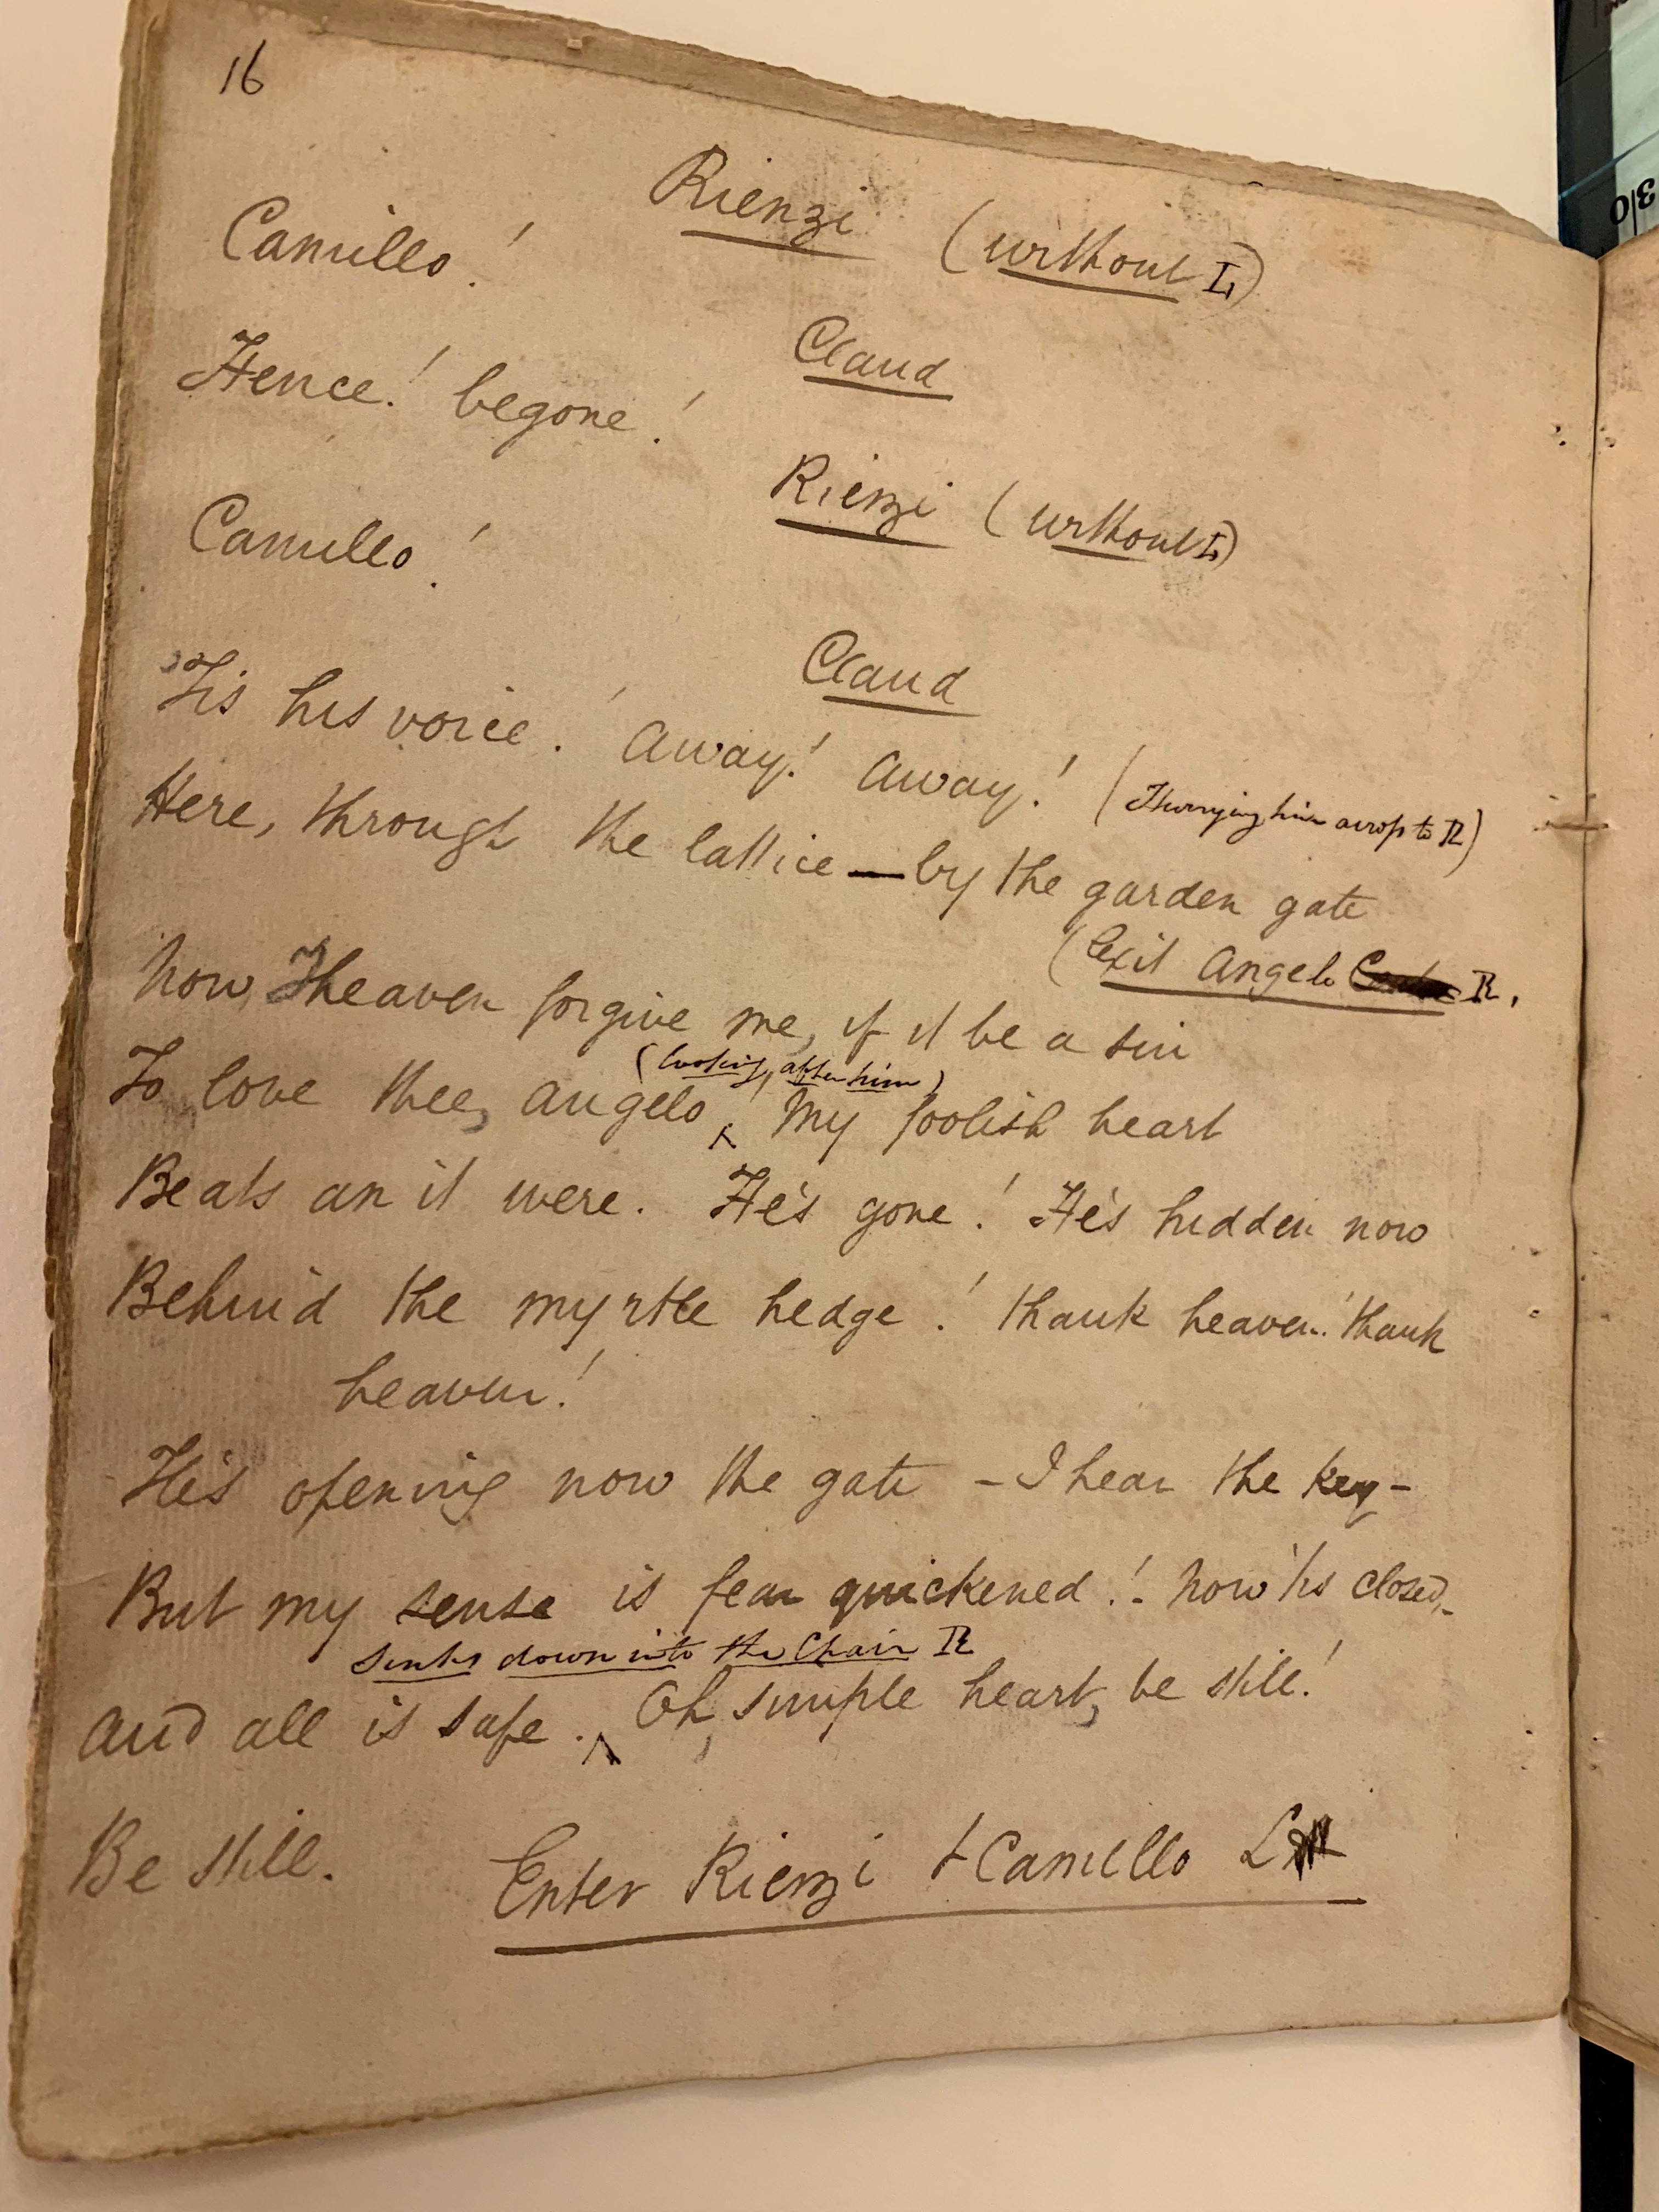 16
Rienzi (without L)
Camillo!
Claud
Hence! begone!
Rienzi (without L)
Camillo!
Claud
'Tis his voice! Away! Away! (Hurrying him across to R)
Here, through the lattice — by the garden gate
(Exit Angelo R.
Now, Heaven forgive me, if it be a sin
(looking after him)
To love thee, Angelo, ^ My foolish heart
Beats an it were. He's gone! He's hidden now
Behind the myrtle hedge! thank heaven! thank
heaven!
He's opening now the gate - I hear the key -
But my sense is fear quickened! - Now 'tis closed,
Sinks down into the Chair R
And all is safe. ^ Oh, simple heart, be still!
Be still.
Enter Rienzi & Camillo L